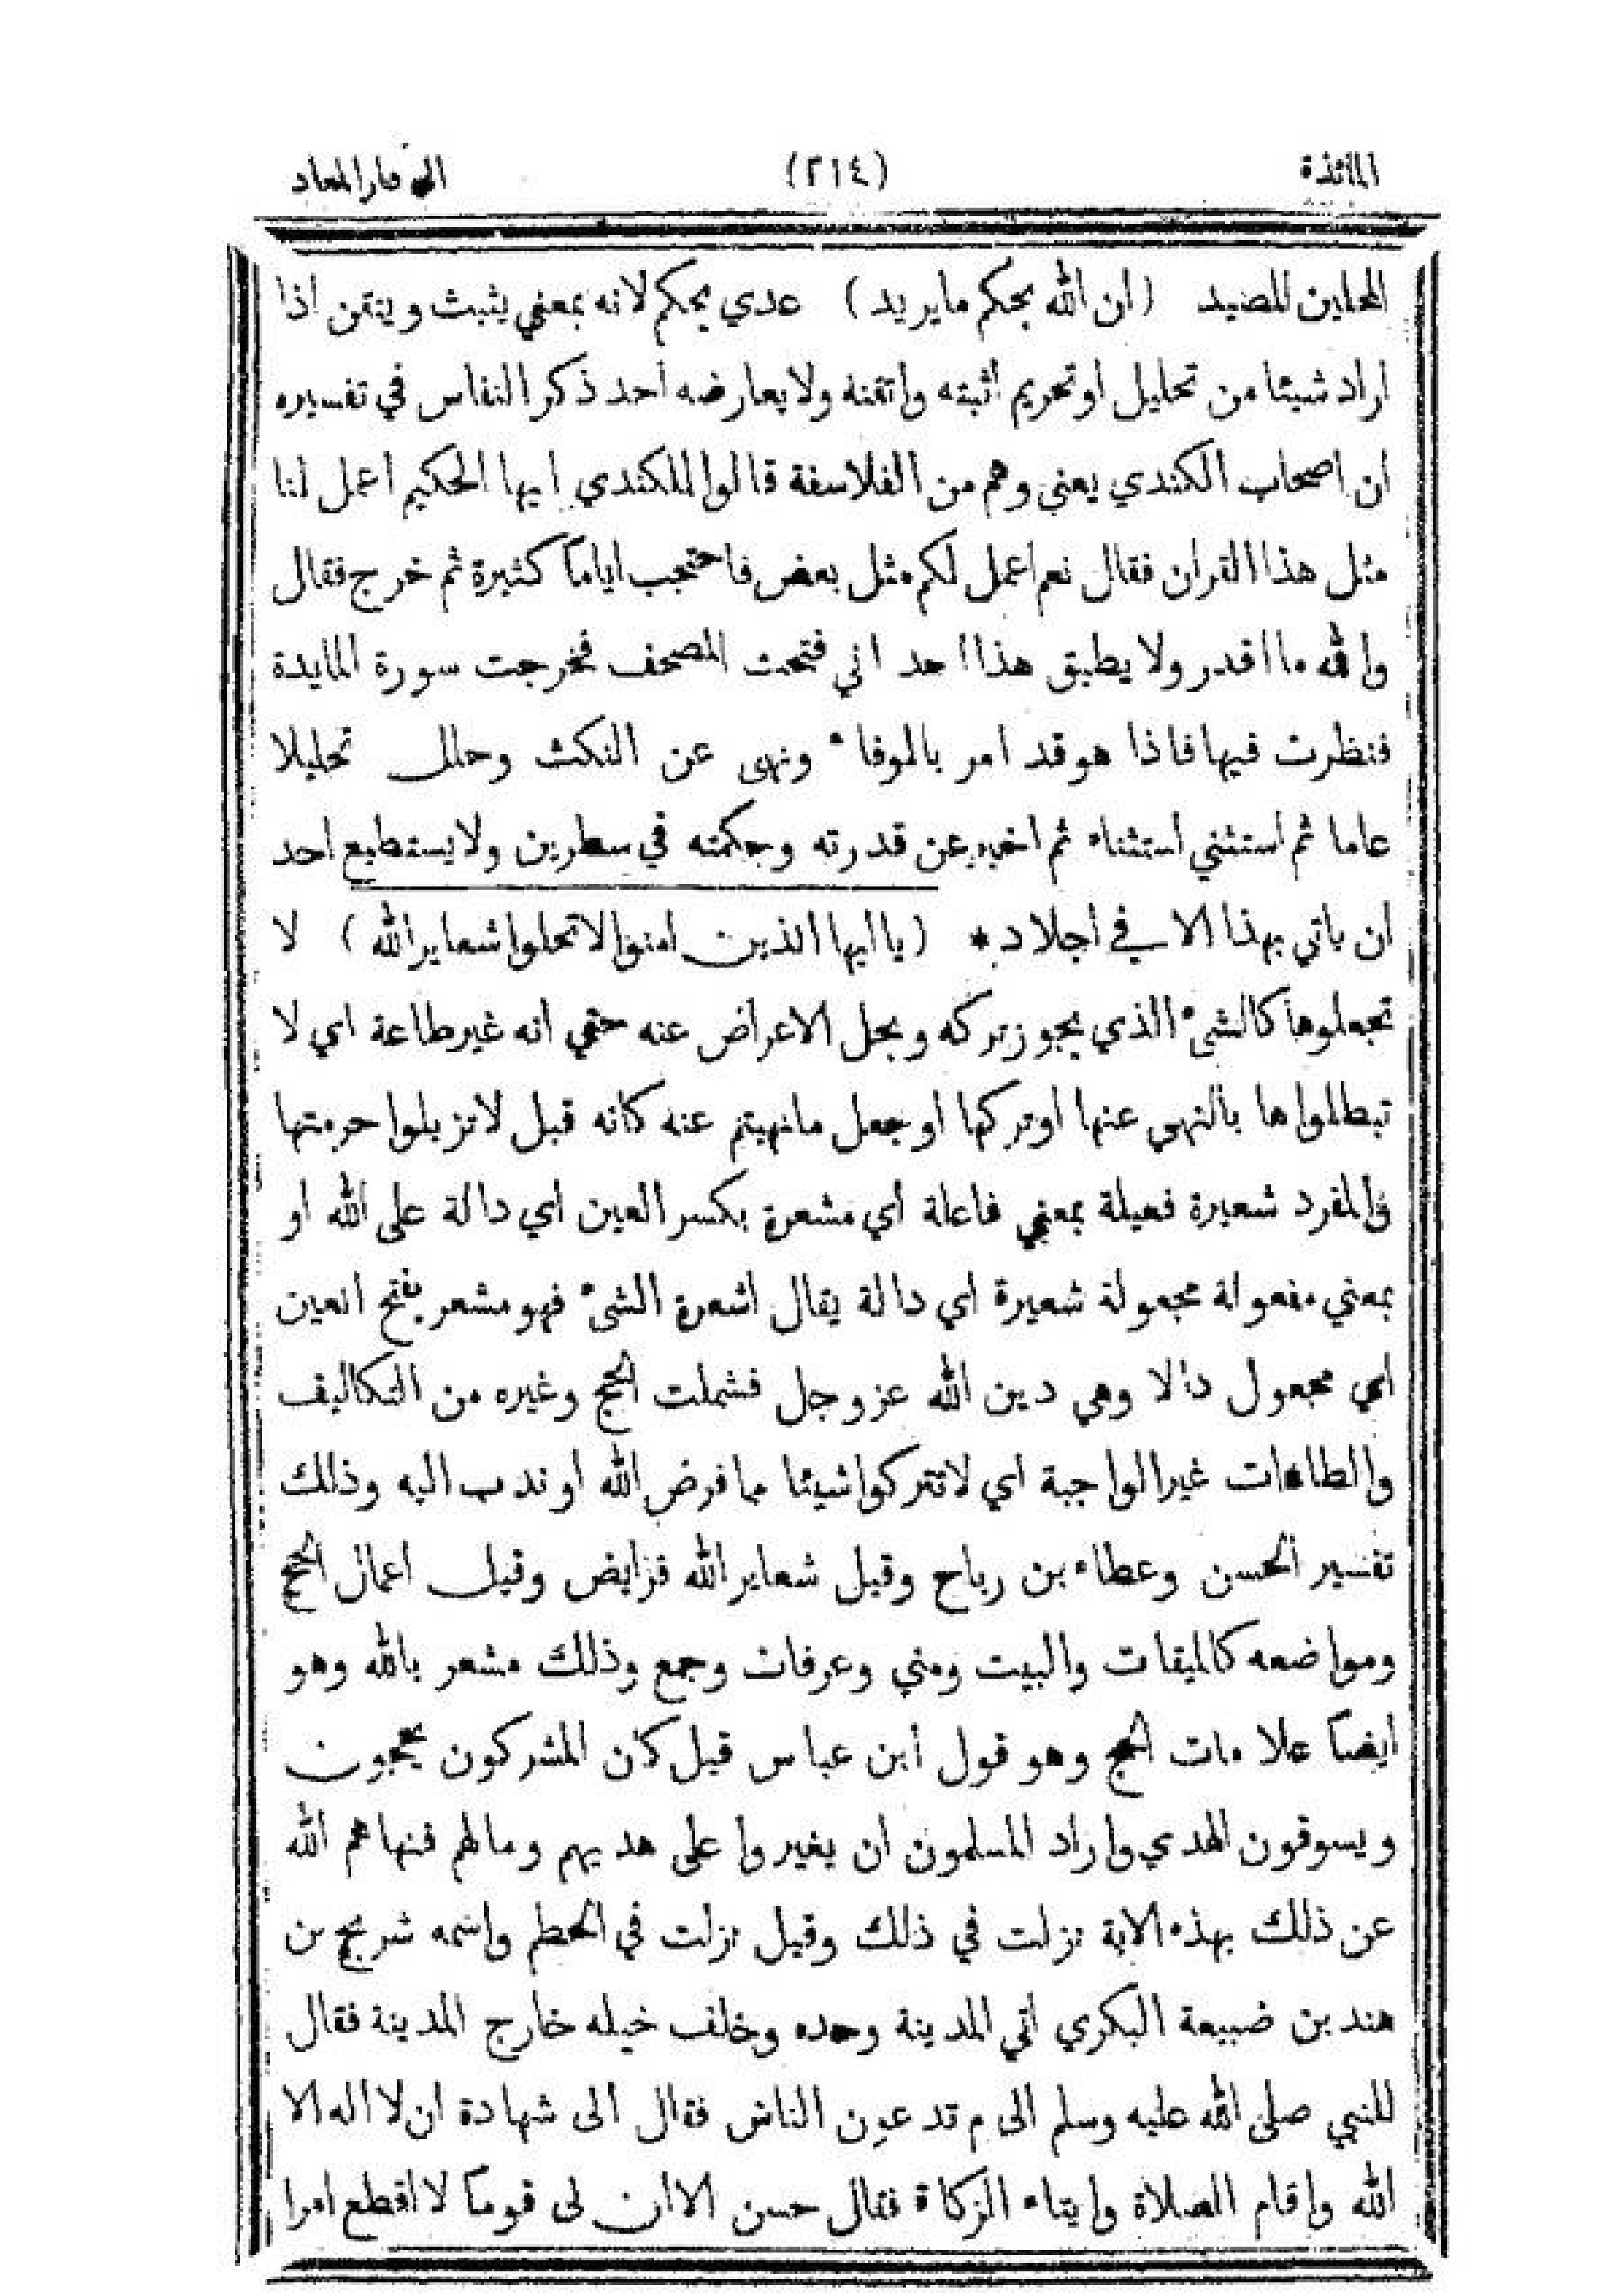 المائدة (٢١٤) الى دار المعاد
المحلين للصيد (ان الله يحكم ما يريد) عدي يحكم لانه بمعني يثبت ويتقن اذا
اراد شيئا من تحليل او تحريم أثبته واتقنه ولا يعارضه أحد ذكر النقاس في تفسيره
ان اصحاب الكندي يعني وهم من الفلاسفة قالوا للكندي ايها الحكيم اعمل لنا
مثل هذا القران فقال نعم اعمل لكم مثل بعض فاحتجب اياماً كثيرة ثم خرج فقال
والله ما اقدر ولا يطيق هذا احد اني فتحت المصحف فخرجت سورة المايدة
فنظرت فيها فاذا هو قد امر بالوفاء ونهى عن النكث وحلل تحليلا
عاما ثم أستثني أستثناء ثم اخبر عن قدرته وحكمته في سطرين ولا يستطيع احد
ان ياتي بهذا الا في أجلاد * (يا أيها الذين امنوا لا تحلوا شعاير الله) لا
تجعلوها كالشيء الذي يجوز تركه ويحل الاعراض عنه حتي انه غير طاعة اي لا
تبطلوا ها بالنهي عنها او تركها او جعل ما نهيتم عنه كانه قيل لا تزيلوا حرمتها
والمفرد شعيرة فعيلة بمعني فاعلة أي مشعرة بكسر العين اي دالة على الله او
بمعني مفعولة مجعولة شعيرة اي دالة يقال اشعرة الشيء فهو مشعر بفتح العين
اي مجعول دالا وهي دين الله عز وجل فشملت الحج وغيره من التكاليف
والطاعات غير الواجبة اي لا تتركوا شيئا مما فرض الله او ندب اليه وذلك
تفسير الحسن وعطاء بن رباح وقيل شعاير الله فرايض وقيل اعمال الحج
ومواضعه كالميقات والبيت ومني وعرفات وجمع وذلك مشعر بالله وهو
أيضاً علامات الحج وهو قول أبن عباس قيل كان المشركون يحجون
ويسوقون الهدي واراد المسلمون ان يغيروا على هديهم ومالهم فنهاهم الله
عن ذلك بهذه الاية نزلت في ذلك وقيل نزلت في الحطم واسمه شريح بن
هند بن ضبيعة البكري اتي المدينة وحده وخلف خيله خارج المدينة فقال
للنبي صلى الله عليه وسلم الى م تدعون الناس فقال الى شهادة ان لا اله الا
الله واقام الصلاة وايتاء الزكاة فقال حسن الا ان لى قوماً لا اقطع امرا